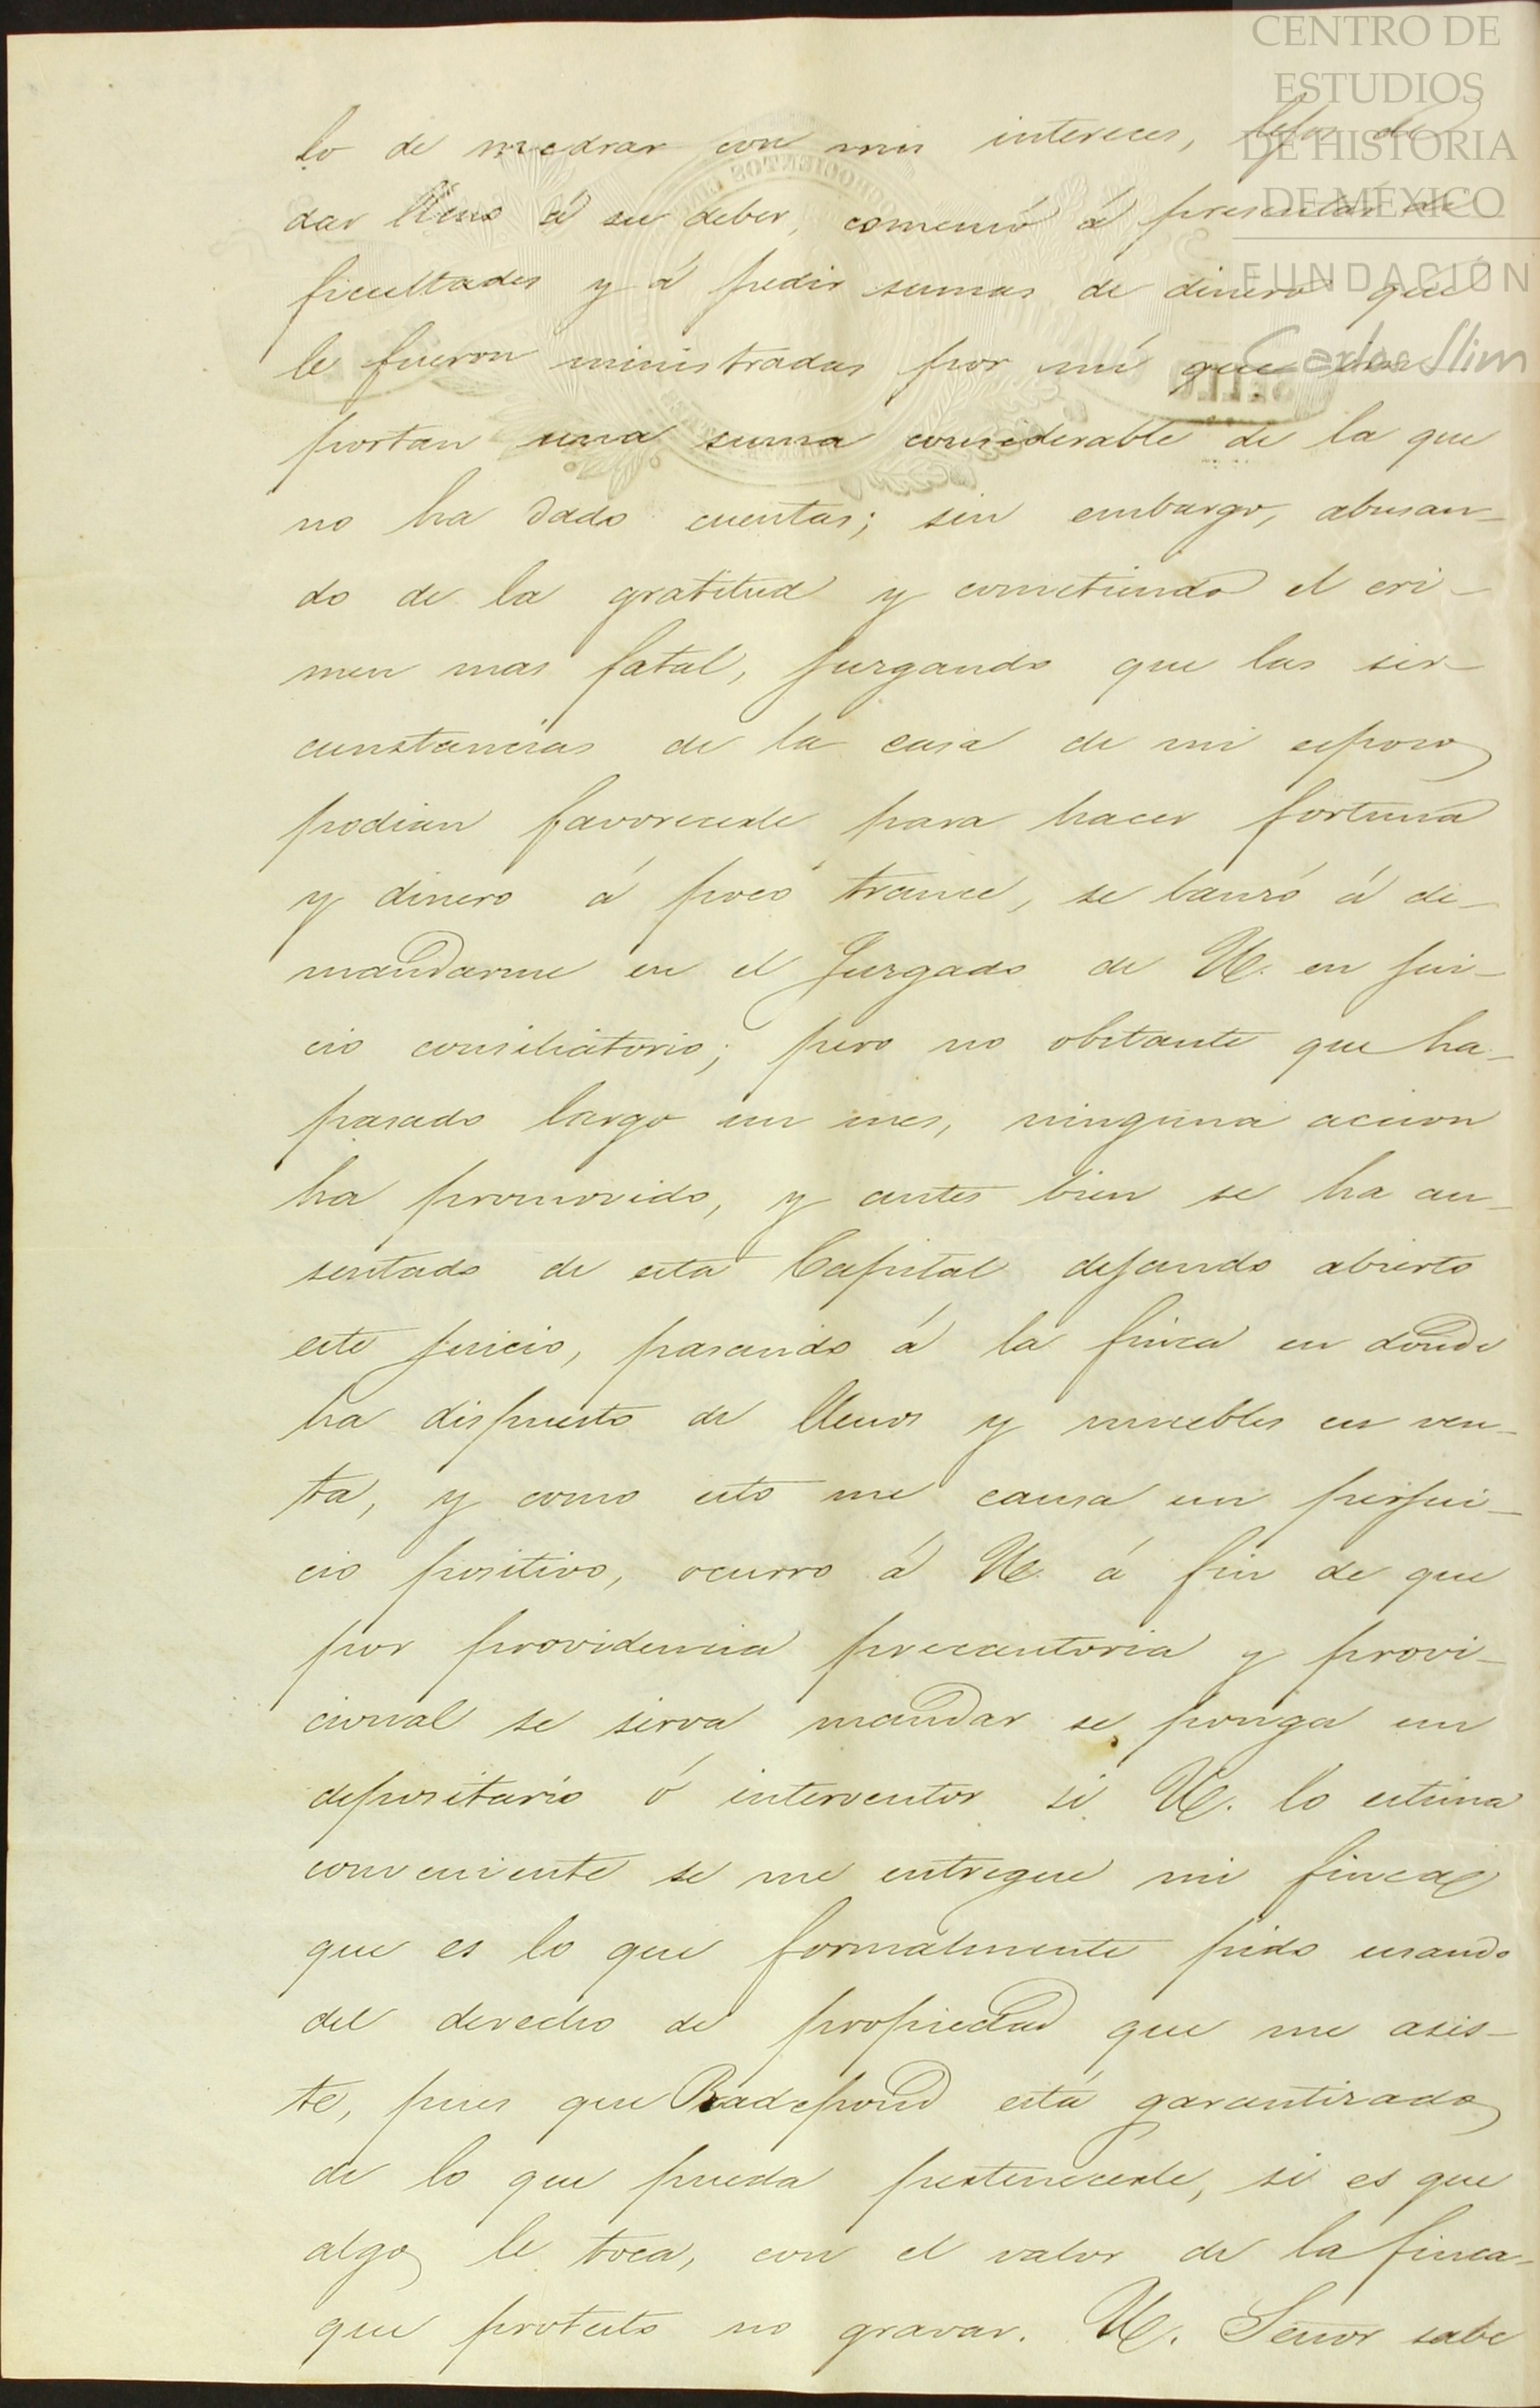 CENTRO DE
ESTUDIOS
DE HISTORIA
DE MÉXICO
FUNDACIÓN
Carlos Slim
lo de medrar con mis intereces, lejos de
dar lleno á su deber, comensó á presentar di
ficultades y á pedir sumas de dinero que
le fueron ministradas por mi que im
portan una suma considerable de la que
no ha dado cuentas; sin embargo, abusan-
do de la gratitud y cometiendo el cri-
men mas fatal, jurgando que las sir-
cunstancias de la casa de mi esposo
podian favorecerle para hacer fortuna
y dinero á poco trance, se lanzó á de-
mandarme en el Jurgado de U. en jui-
cio consiliatorio; pero no obstante que ha-
pasado largo un mes, ninguna accion
ha promovido, y antes bien se ha au-
sentado de esta Capital dejando abierto
este juicio, pasando á la finca en donde
ha dispuesto de llenos y muebles en ven-
ta, y como esto me causa un perjui-
cio positivo, ocurro á U. á fin de que
por providencia precautoria y provi-
cional se sirva mandar se ponga un
depositario ó interventor si U. lo estima
conveniente se me entregue mi finca
que es lo que formalmente pido usando
del derecho de propiedad que me asis-
te, pues que Radepond está garantizado
de lo que pueda pertenecerle, si es que
algo le toca, con el valor de la finca-
que protesto no gravar. U. Señor sabe